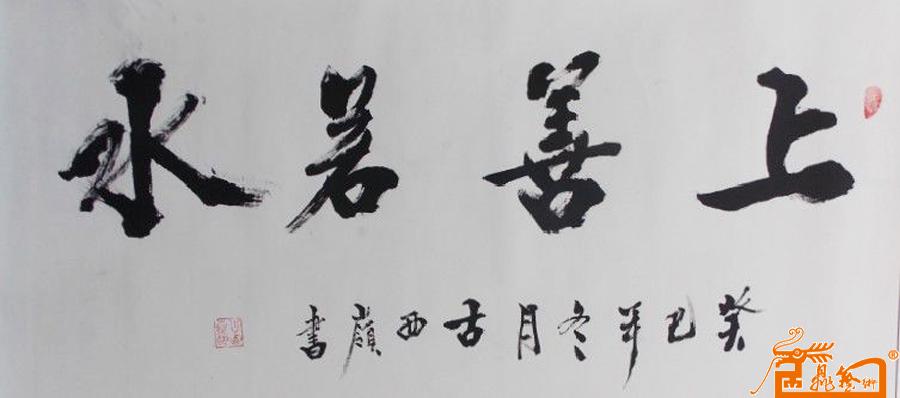 上善若水
癸巳年冬月古西嶺書
藝術